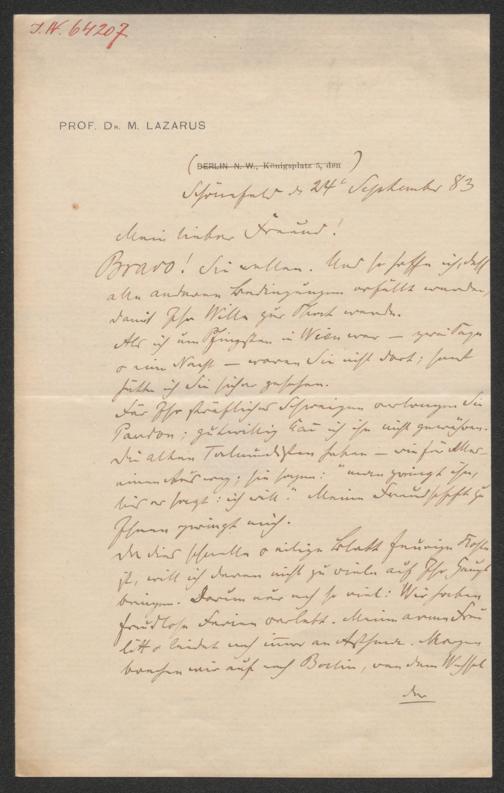 J.N. 64207
PROF. DR. M. LAZARUS
(BERLIN N. W., Königsplatz 5, den)
Schönefeld d. 24t September 83
Mein lieber Freund!
Bravo! Sie wollen. Und so hoffe ich, daß
alle anderen Bedingungen erfüllt werden,
damit Ihr Wille zur That werde.
Als ich um Pfingsten in Wien war – zwei Tage
u eine Nacht – waren Sie nicht dort; sonst
hätte ich Sie sicher gesehen.
Für Ihr sträfliches Schweigen verlangen Sie
Pardon; gutwillig kan ich ihn nicht gewähren.
Die alten Talmudisten haben – wie für Alles –
einen Ausweg; sie sagen: "man zwingt ihn,
bis er sagt: ich will." Meine Freundschaft zu
Ihnen zwingt mich.
Da dies schnelle u eilige Blatt feurige Kohlen
ist, will ich deren nicht zu viele auf Ihr Haupt
bringen. Darum nur noch so viel: Wir haben
freudlose Ferien verlebt. Meine arme Frau
litt u leidet noch immer an Asthma. Morgen
brechen wir auf nach Berlin, von dem Wechsel
der